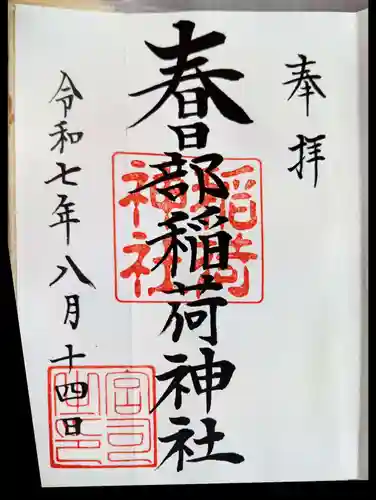 奉拝
春日部稲荷神社
稲荷
神社
令和七年八月十四日